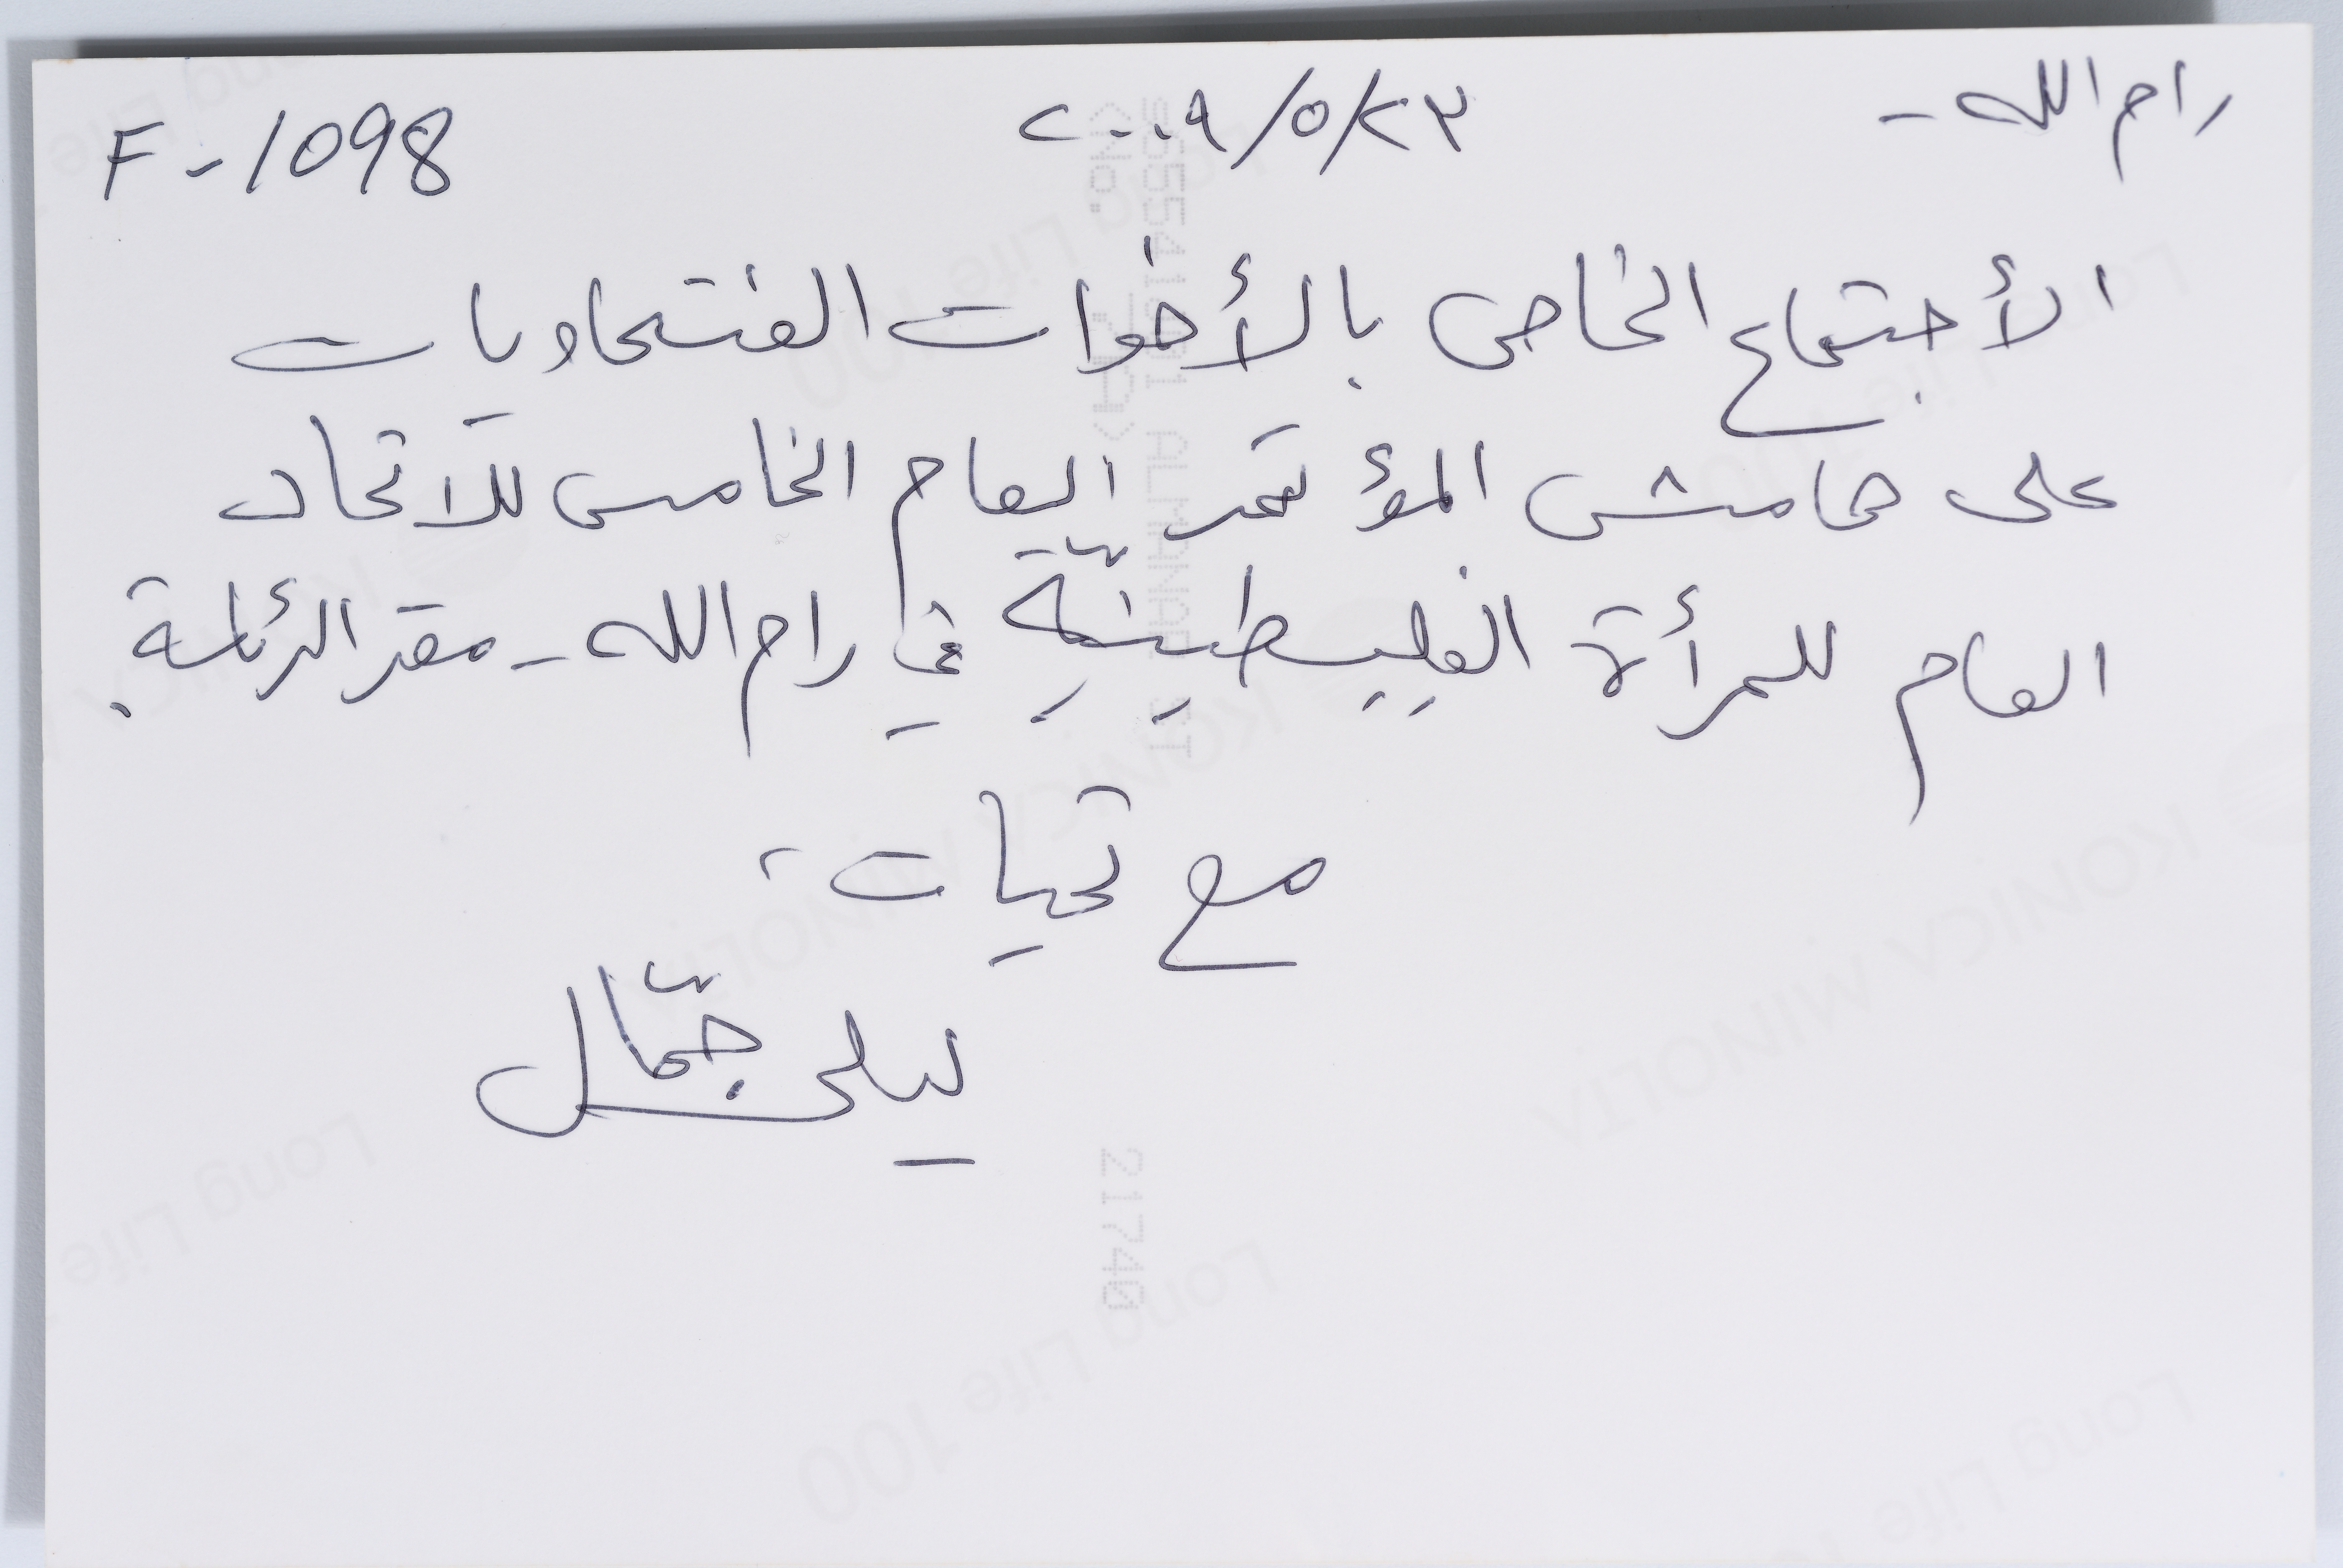 رام الله - ٢٠٠٩/٥/٢٣ F-1098
الأجتماع الخاص بالأخوات الفتحاويات
على هامش المؤتمر العام الخامس للاتحاد
العام للمرأة الفلسطينيّة في رام الله - مقر الرئاسة.
مع تحيات،
ليلى جمّال
217740
KONICA MINOLTA
Long Life 100